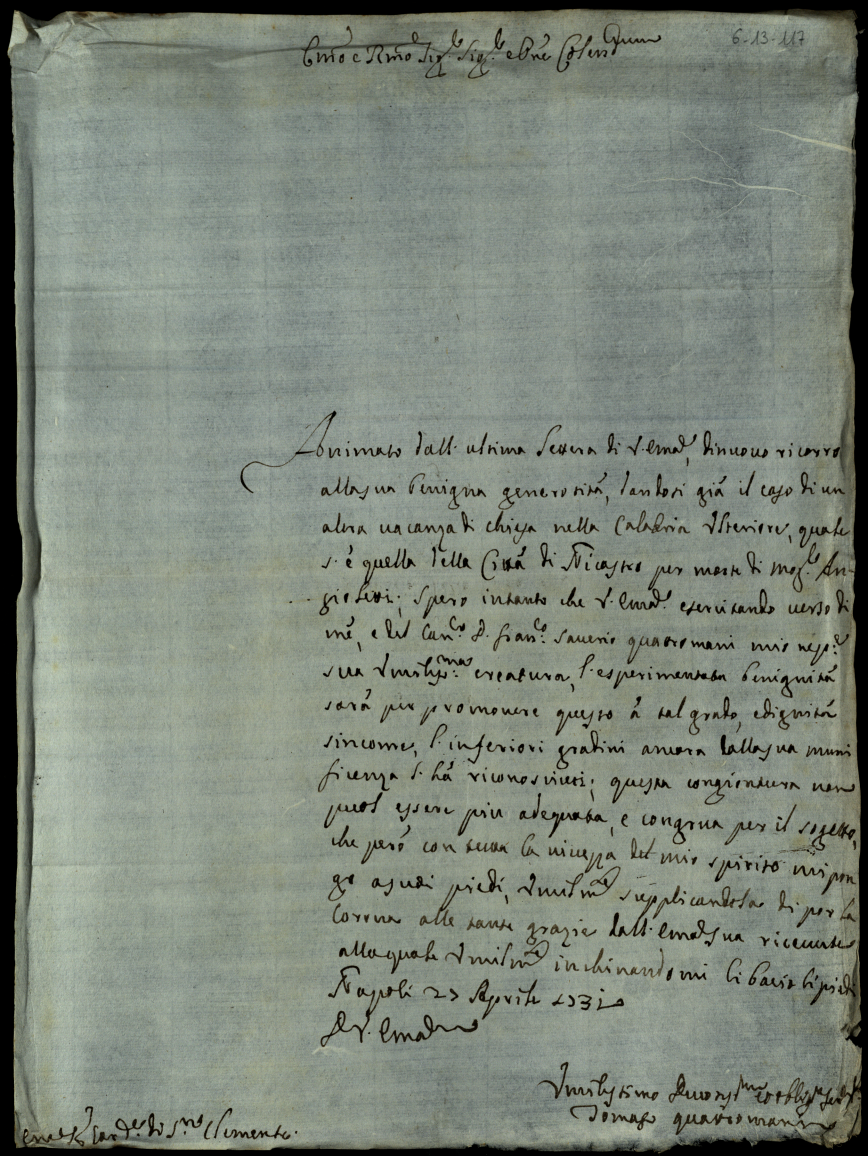 6-13-117
Em̃o e Rm̃o Sig.re Sig.re e Pñe Colend
Annimato dall. ultima lettera di V. Emac., dinuovo ricorro
allasua benigna generosità, dandosi già il caso di un
altra vacanza di chiesa nella Calabria Ulteriore, quale
s. è quella della Città di Nicastro per morte di Mog.re An-
gioletti; spero intanto che V. Emac. esercitando verso di
mè, e del Can.co D. Fran.co Saverio quattromani mio nepo.e
sua Umiliss.ma creatura, l'esperimentata benignità
sarà per promovere questo à tal grado, edignità
sincome, l'inferiori gradini ancora dallasua muni
ficenza l. hà riconosciuti; questa congiontura non
puol essere piu adequata, e congrua per il sogetto,
che però con tutta la vivezza del mio spirito mipon
go asuoi piedi, Umilm.e supplicandola di por la
Corona alle tante grazie dall. Emac. sua ricevute
allaquale Umilm.e inchinandomi li bacio li piedi
Napoli 27 Aprile 1731
D V. Emac.
Umilissimo Devotiss.mo
Tomaso quattromani
Car.le di S.no Clemente.